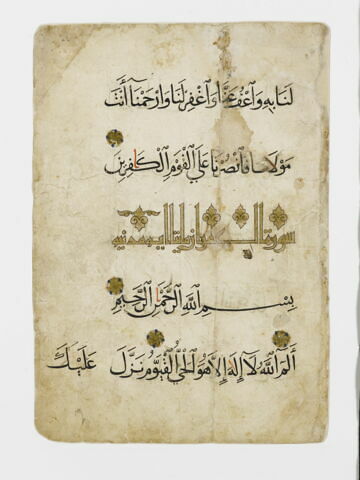 لَنَا بِهِ وَاعْفُ عَنَّا وَاغْفِرْ لَنَا وَارْحَمْنَا أَنْتَ
مَوْلَانَا فَانْصُرْنَا عَلَى الْقَوْمِ الْكَافِرِينَ
سورة ال عمران مايتا اية مدنية
بِسْمِ اللَّهِ الرَّحْمَنِ الرَّحِيمِ
الم اللَّهُ لَا إِلَهَ إِلَّا هُوَ الْحَيُّ الْقَيُّومُ نَزَّلَ عَلَيْكَ